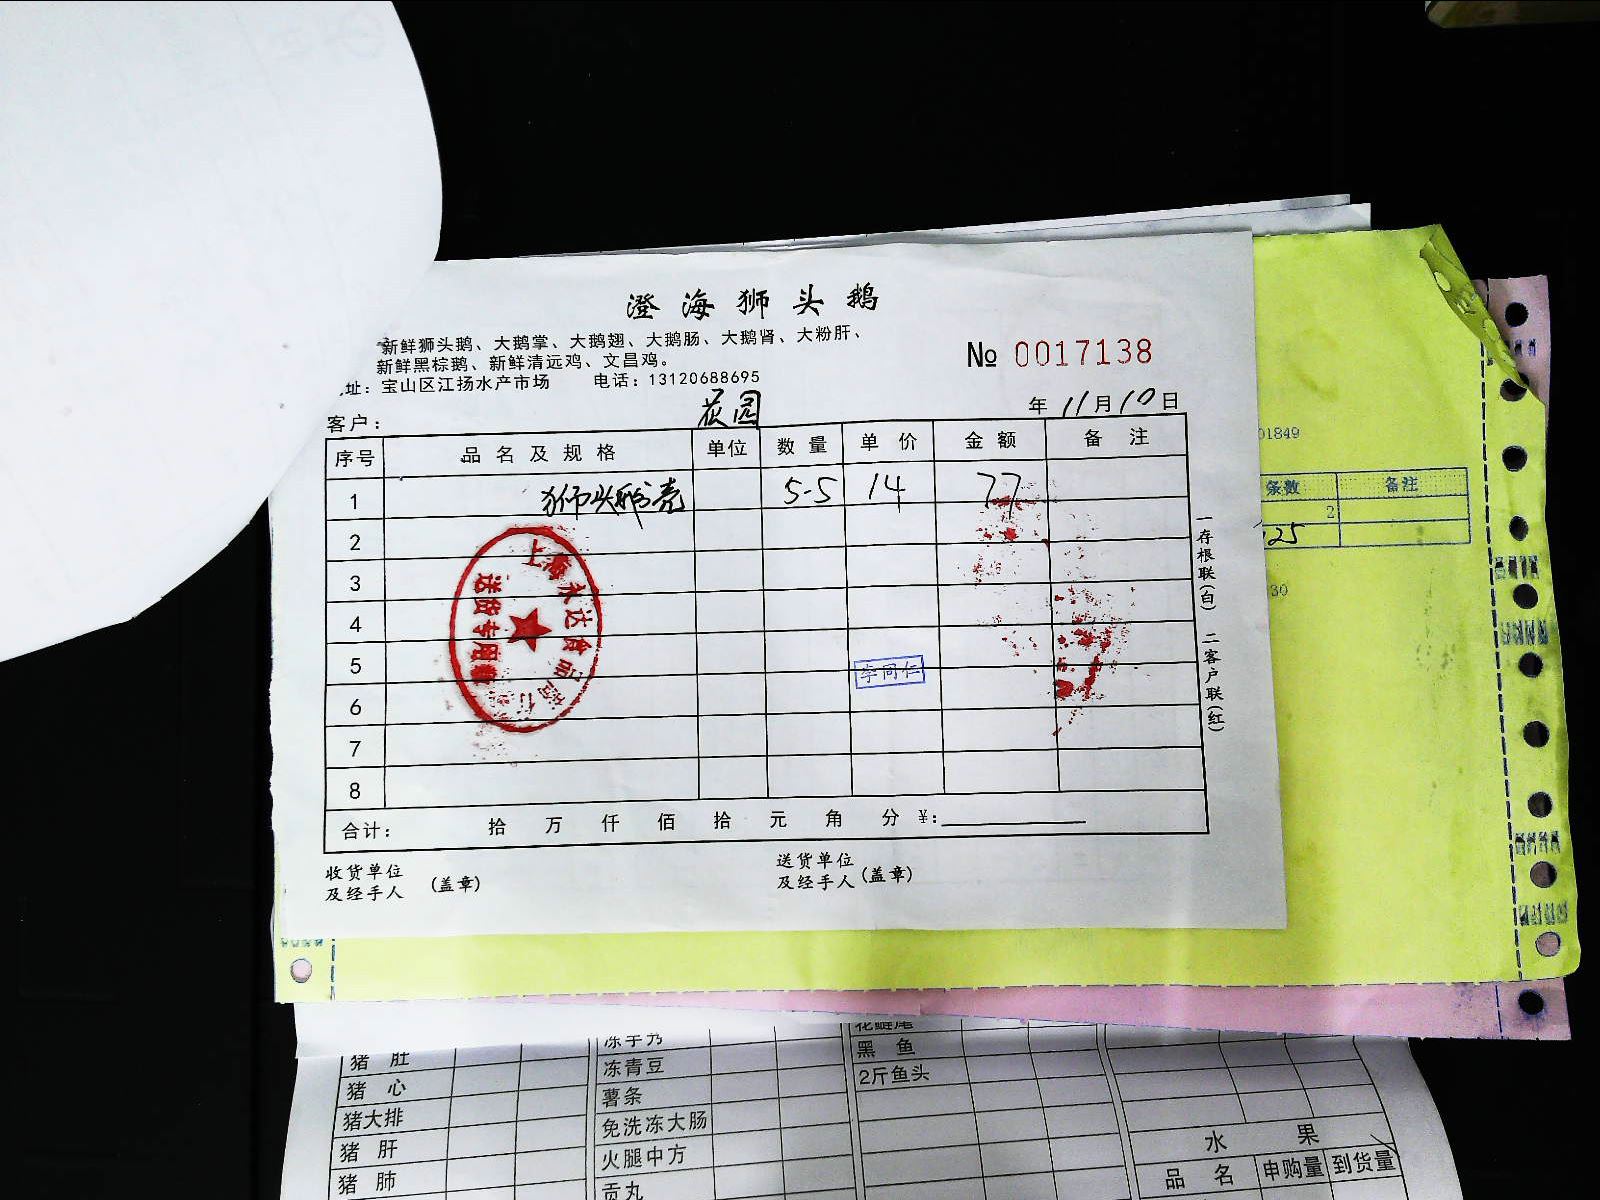 澄海狮头鹅
新鲜狮头鹅、大鹅掌、大鹅翅、大鹅肠、大鹅肾、大粉肝、
新鲜黑棕鹅、新鲜清远鸡、文昌鸡。
址：宝山区江扬水产市场 电话：13120688695
№ 0017138
客户： 花园 年 11 月 10 日
序号 品名及规格 单位 数量 单价 金额 备注
1 狮头鹅壳 5-5 14 77
2
3
4
5
6
7
8
上海永达食品
送货专用章
李同仁
合计： 拾 万 仟 佰 拾 元 角 分 ¥：
收货单位
及经手人 (盖章)
送货单位
及经手人 (盖章)
一存根联(白) 二客户联(红)
01849
条数 备注
2
25
30
猪肚
猪心
猪大排
猪肝
猪肺
冻青豆
薯条
免洗冻大肠
火腿中方
贡丸
花鲢尾
黑鱼
2斤鱼头
水果
品名 申购量 到货量